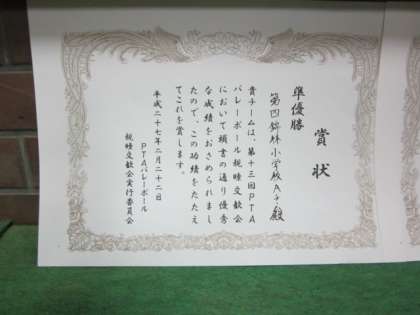 賞状
準優勝
第四錦林小学校A子殿
貴チームは、第十三回PTA
バレーボール親睦交歓会
において頭書の通り優秀
な成績をおさめられまし
たので、この功績をたたえ
てこれを賞します。
平成二十七年二月二十二日
PTAバレーボール
親睦交歓会実行委員会